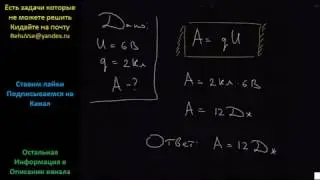 Есть задачи которые
не можете решить
Кидайте на почту
Rehuvse@yandex.ru
Ставим лайки
Подписываемся на
Канал
Остальная
Информация в
Описании канала
Дано:
U = 6 В
q = 2 Кл
A - ?
A = qU
A = 2 Кл · 6 В
A = 12 Дж
Ответ: A = 12 Дж